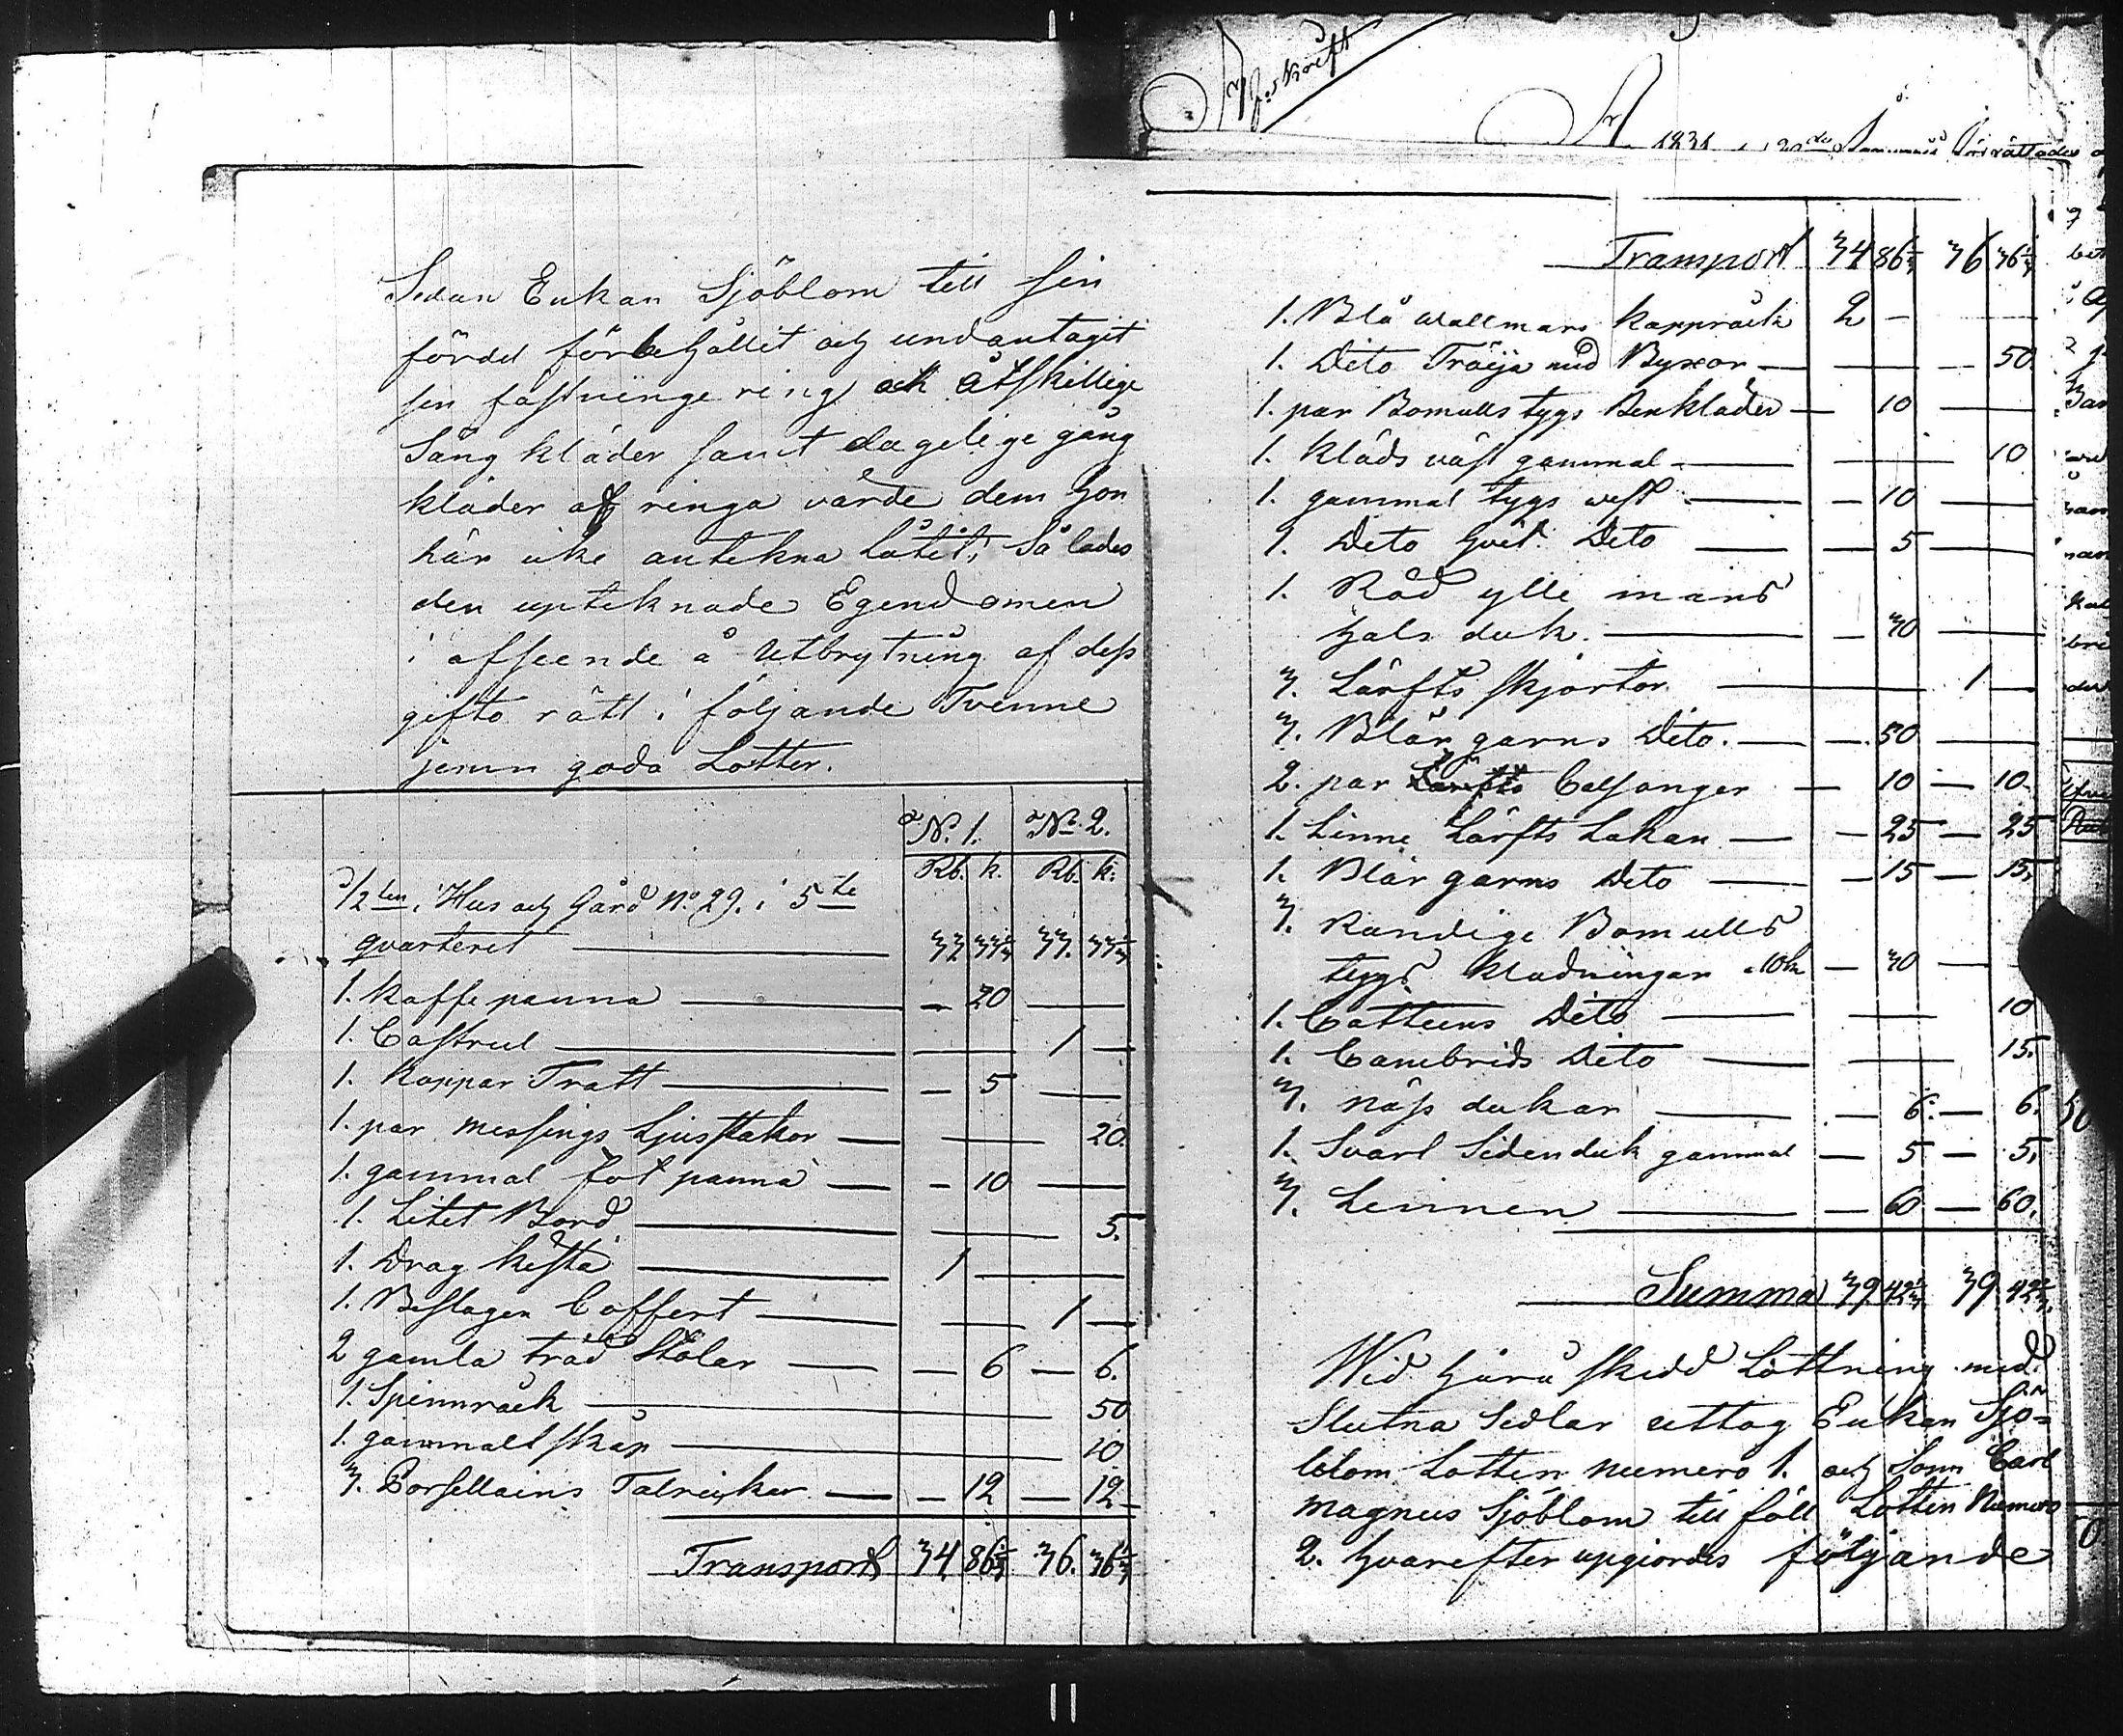 Sedan Enkan Sjöblom till sin
fördel förbehållit och undantagit
sin fästninge ring och åtskillige
Säng kläder samt dagelige gång
kläder af ringa värde dem hon
här icke antekna låtit; Så lades
den uptecknade Egendomen
i afseende å Utbrytning af dess
gifto rätt i följande Tvenne
jemn goda Lotter.
No. 1. No. 2.
Rb. k. Rb. k.
1/2 ten i Hus och Gård No 29. i 5te
quarteret 33 33 1/3 33. 33 1/3
1. kaffe panna — 20
1. Castrul 1 —
1. koppar Tratt — 5
1. par messings Ljusstakar 20.
1. gammal fot panna — 10
1. Litet Bord 5.
1. Drag kista 1
1. Beslagen Coffert 1 —
2 gamla träd Stolar — 6 — 6.
1. Spinnrack 50
1. gammalt skåp 10
3. Porsellains Talrickar — 12 — 12 —
Transport 34 86 1/3 36. 36 1/3
Afskrift
År 1831 Förrättades
Transport 34 86 1/3 36 36 1/3
1. Blå wallmars kapprack 2 —
1. Dito Tröija med Byxor 50.
1. par Bomulls tygs Benkläder — 10
1. kläds väst gammal 10
1. gammal tygs west — 10
1. Dito hvit Dito — 5
1. Röd ylle mans
hals duk. — 30
3. Lärfts skjortor 1 —
3. Blår garns Dito. — 50
2. par Calsonger — 10 — 10.
1. Linne Lärfts Lakan — 25 — 25
1. Blår garns Dito — 15 — 15,
3. Randige Bomulls
tygs kladningar a 10 k — 30
1. Cattuns Dito 10
1. Cambrids Dito 15.
3. näs dukar — 6. — 6.
1. Svart Sidenduk gammal — 5 — 5,
3. Linnen — 60 — 60.
Summa 39 42 1/3 39 42 1/3
Wid härå skedd Lottning med
Slutna Sedlar uttog Enkan Sjö=
blom Lotten numero 1. och Sonn Carl
Magnus Sjöblom till föll Lotten Numero
2. hvarefter upgiordes följande